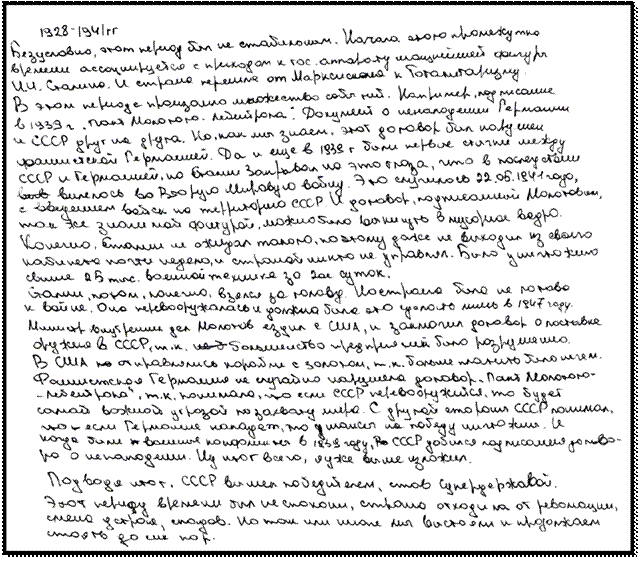 1928-1941гг
Безусловно, этот период был не стабильным. Начало этого промежутка
времени ассоциируется с приходом к гос. аппарату мощнейшей фигуры
И.И. Сталина. И страна перешла от Марксизма к Тоталитаризму.
В этом периоде произошло множество событий. Например, подписание
в 1939 г. "Пакт Молотого-лебейтропа". Документ о ненападении Германии
и СССР друг на друга. Но, как мы знаем, этот договор был нарушен
фашисткой Германией. Да и еще в 1938 г были первые стычки между
СССР и Германией, но Сталин закрывал на это глаза, что в последствии
вылелось во Вторую Мировую войну. Это случилось 22.06.1941 года,
с введением войск на территорию СССР. И договор, подписанный Молотовым,
так же значимой фигурой, можно было выкинуть в мусорное ведро.
Конечно, Сталин не ожидал такого, поэтому даже не выходил из своего
кабинета почти неделю, и страной никто не управлял. Было уничтожено
свыше 25 тыс. военной техники за 2ое суток.
Сталин, потом, конечно, взялся за голову. Но страна была не готова
к войне. Она перевооружалась и должна была это сделать лишь в 1947 году.
Министр внутренних дел Молотов ездил с США, и заключил договор о поставке
оружия в СССР, т.к. большинство предприятий было разрушено.
В США отправлялись корабли с золотом, т.к. больше платить было нечем.
Фашистская Германия не случайно нарушила договор "Пакт Молотого-
лебейтропа", т.к. понимала, что если СССР перевооружится, то будет
самой важной угрозой по захвату мира. С другой стороны СССР понимал,
что если Германия нападет, то шансы на победу ничтожны. И
когда были военные конфликты в 1939 году, СССР добился подписания догово-
ра о ненападении. Из итог всего, я уже выше изложил.
Подводя итог, СССР вышел победителем, став Супердержавой.
Этот период времени был не спокоен, страна отходила от революции,
смена устроя, спадов. Но так или иначе мы выстояли и продолжаем
стоять до сих пор.